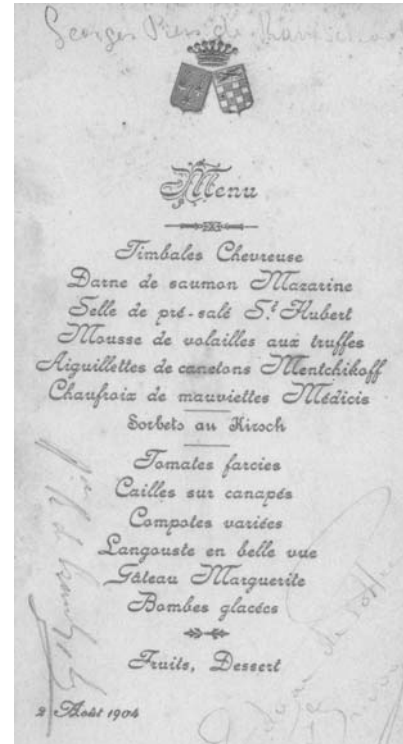 Georges
Menu
Timbales Chevreuse
Darne de saumon Mazarine
Selle de pré-salé St Hubert
Mousse de volailles aux truffes
Aiguillettes de canetons Mentchikoff
Chaufroix de mauviettes Médicis
Sorbets au Kirsch
Tomates farcies
Cailles sur canapés
Compotes variées
Langouste en belle vue
Gâteau Marguerite
Bombes glacées
Fruits, Dessert
2 Août 1904